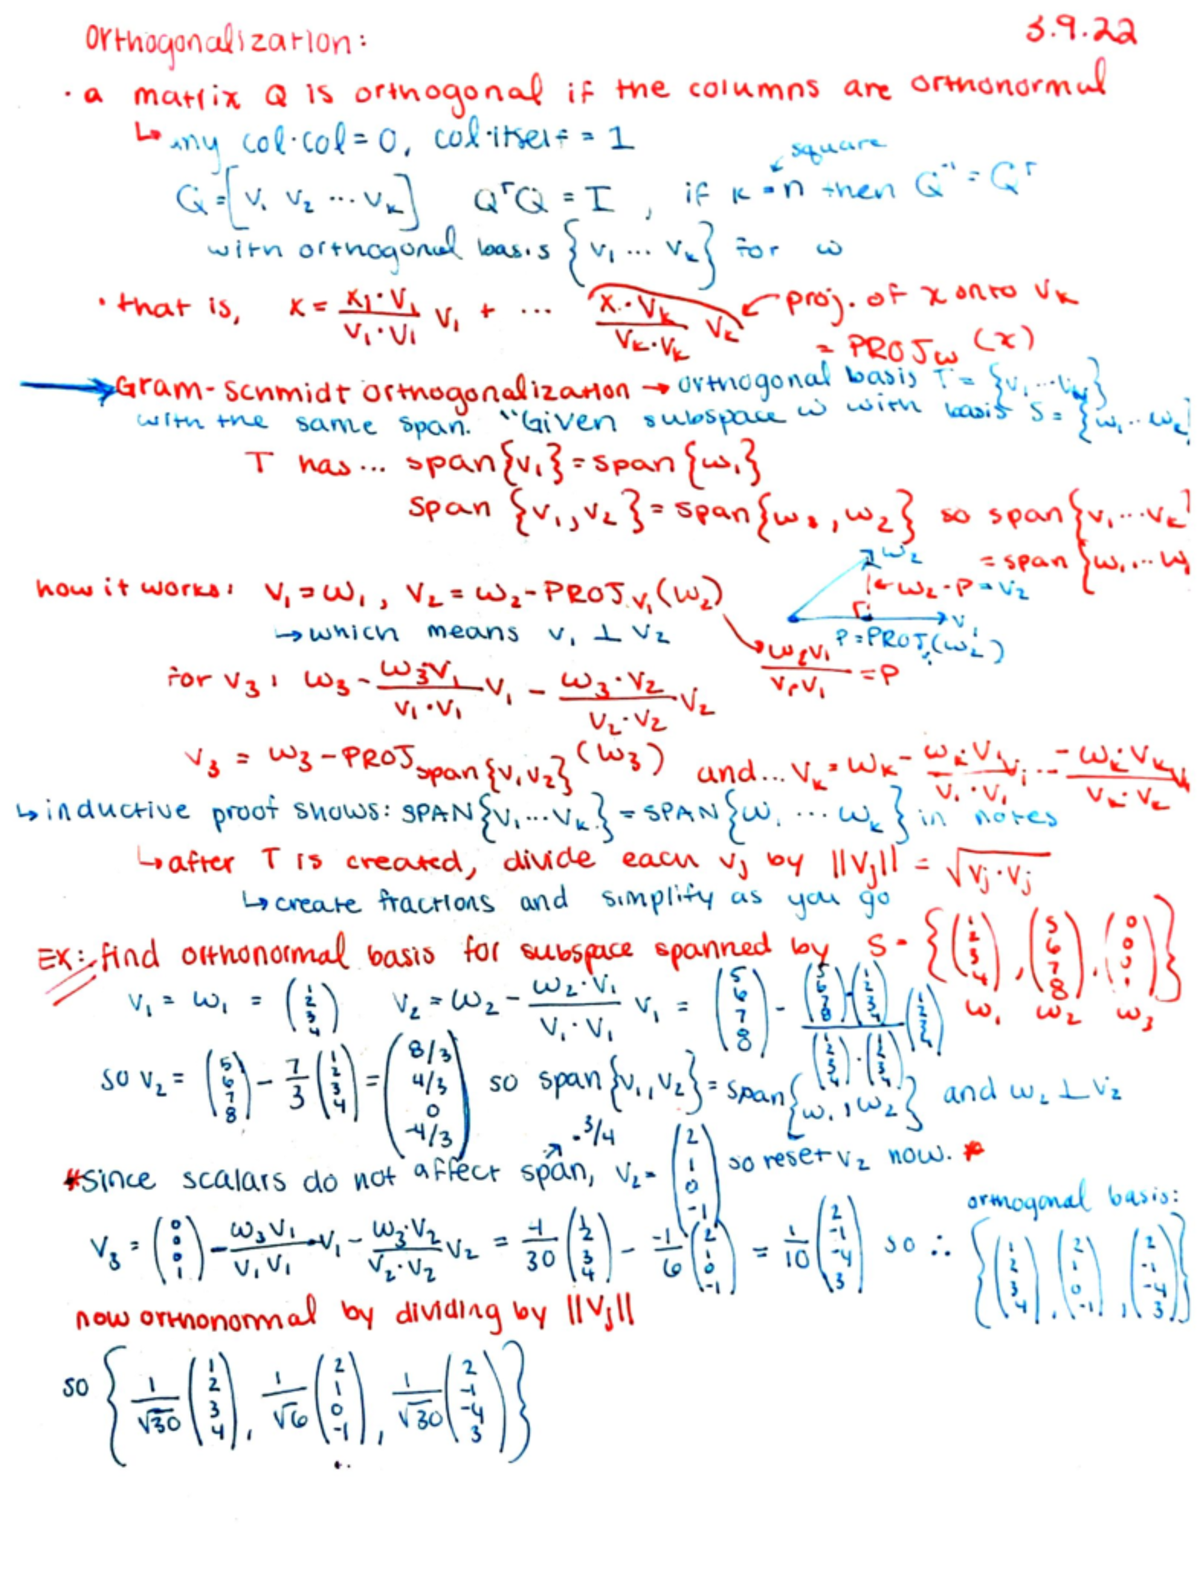 Orthogonalization: 3.9.22
· a matrix Q is orthogonal if the columns are orthonormal
↳ any col·col = 0, col·itself = 1
Q = [v₁ v₂ ... vₖ] QᵀQ = I, if k = n then Q⁻¹ = Qᵀ
↙ square
with orthogonal basis {v₁ ... vₖ} for ω
· that is, x = (x₁·v₁)/(v₁·v₁) v₁ + ... (x·vₖ)/(vₖ·vₖ) vₖ ← proj. of x onto vₖ
= PROJω (x)
→ Gram-Schmidt orthogonalization → orthogonal basis T = {v₁...vₖ}
with the same span. "Given subspace ω with basis S = {ω₁...ωₖ}
T has... span{v₁} = span{ω₁}
span {v₁, v₂} = span{ω₁, ω₂} so span{v₁...vₖ}
= span {ω₁...ω
how it works: v₁ = ω₁, v₂ = ω₂ - PROJv₁(ω₂)
ω₂
ω₂ - P = v₂
v₁
P = PROJ(ω₂)
↳ which means v₁ ⊥ v₂
(ω₂v₁)/(v₁v₁) = P
for v₃: ω₃ - (ω₃v₁)/(v₁·v₁) v₁ - (ω₃·v₂)/(v₂·v₂) v₂
v₃ = ω₃ - PROJspan{v₁v₂} (ω₃) and... vₖ = ωₖ - (ωₖ·v₁)/(v₁·v₁) v₁ ... - (ωₖ·vₖ)/(vₖ·vₖ) vₖ
↳ inductive proof shows: SPAN{v₁...vₖ} = SPAN{ω₁ ... ωₖ} in notes
↳ after T is created, divide each vⱼ by ||vⱼ|| = √(vⱼ·vⱼ)
↳ create fractions and simplify as you go
EX: find orthonormal basis for subspace spanned by S = {(1 2 3 4), (5 6 7 8), (0 0 0 1)}
ω₁ ω₂ ω₃
v₁ = ω₁ = (1 2 3 4) v₂ = ω₂ - (ω₂·v₁)/(v₁·v₁) v₁ = (5 6 7 8) - ((5 6 7 8)·(1 2 3 4))/((1 2 3 4)·(1 2 3 4)) (1 2 3 4)
so v₂ = (5 6 7 8) - 7/3 (1 2 3 4) = (8/3 4/3 0 -4/3) so span{v₁, v₂} = span{ω₁, ω₂} and ω₂ ⊥ v₂
·3/4
*Since scalars do not affect span, v₂ = (2 1 0 -1) so reset v₂ now. *
v₃ = (0 0 0 1) - (ω₃v₁)/(v₁v₁)·v₁ - (ω₃·v₂)/(v₂·v₂) v₂ = -4/30 (1 2 3 4) - -1/6 (2 1 0 -1) = 1/10 (2 -1 -4 3) so ∴
orthogonal basis:
{(1 2 3 4), (2 1 0 -1), (2 -1 -4 3)}
now orthonormal by dividing by ||vⱼ||
so {1/√30 (1 2 3 4), 1/√6 (2 1 0 -1), 1/√30 (2 -1 -4 3)}